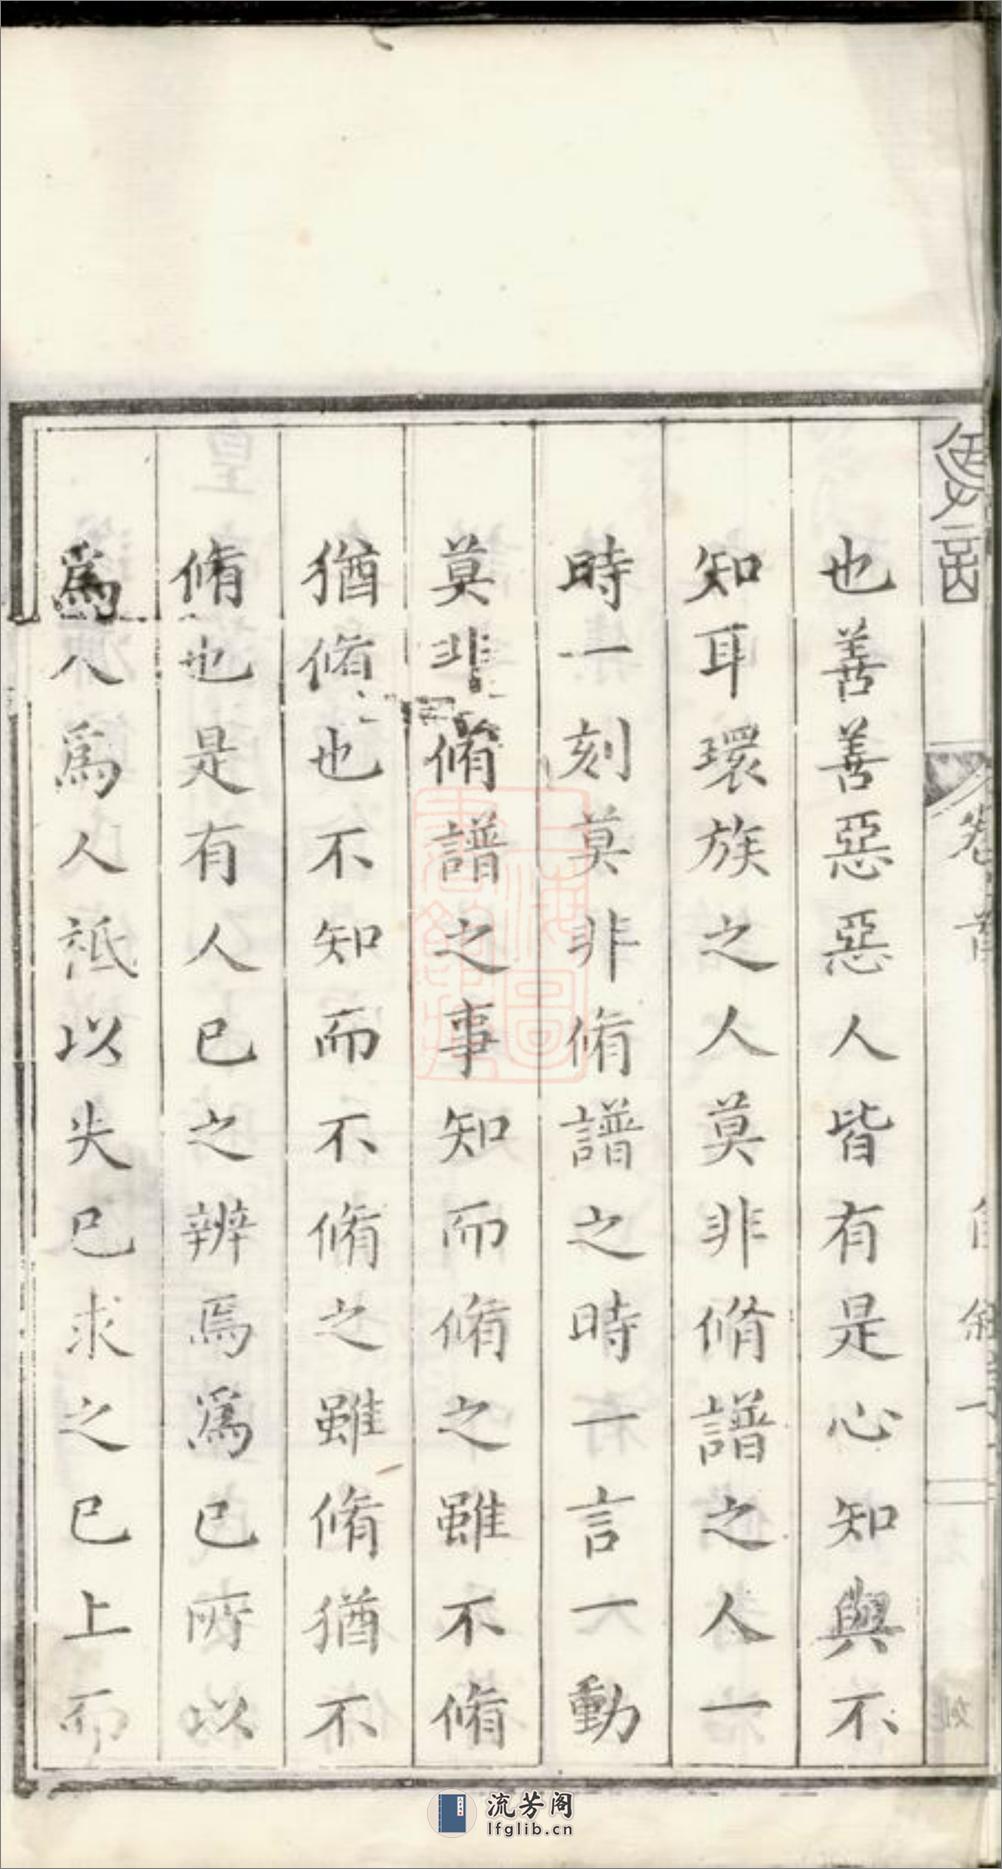 也善善惡惡人皆有是心知與不
知耳環族之人莫非脩譜之人一
時一刻莫非脩譜之時一言一動
莫非脩譜之事知而脩之雖不脩
猶脩也不知而不脩之雖脩猶不
脩也是有人己之辨焉爲己所以
爲人爲人祗以失己求之己上而
流芳阁
lfglib.cn